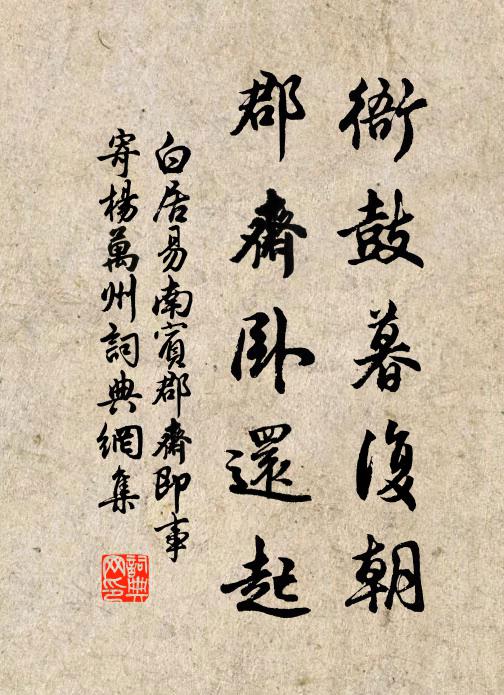 衙鼓暮復朝
郡齋卧還起
白居易南賓郡齋即事
寄楊萬州詞典網集
詞典
网印